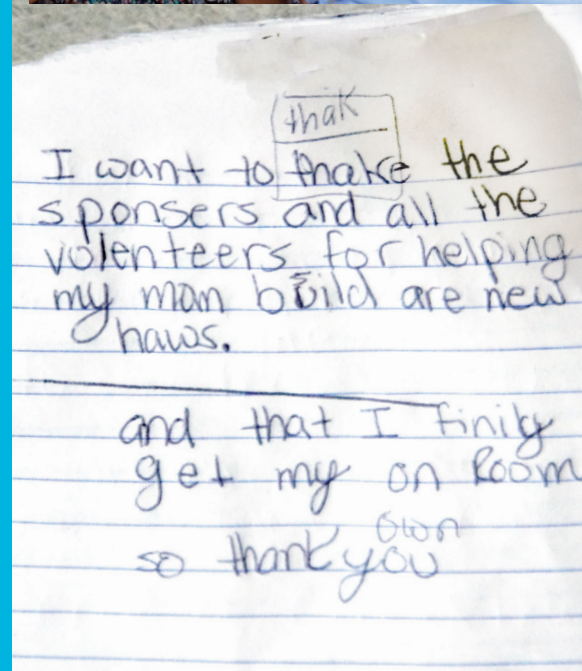 thak
I want to thake the
sponsers and all the
volenteers for helping
my mom build are new
haws.
and that I finily
get my on Room
own
so thank you